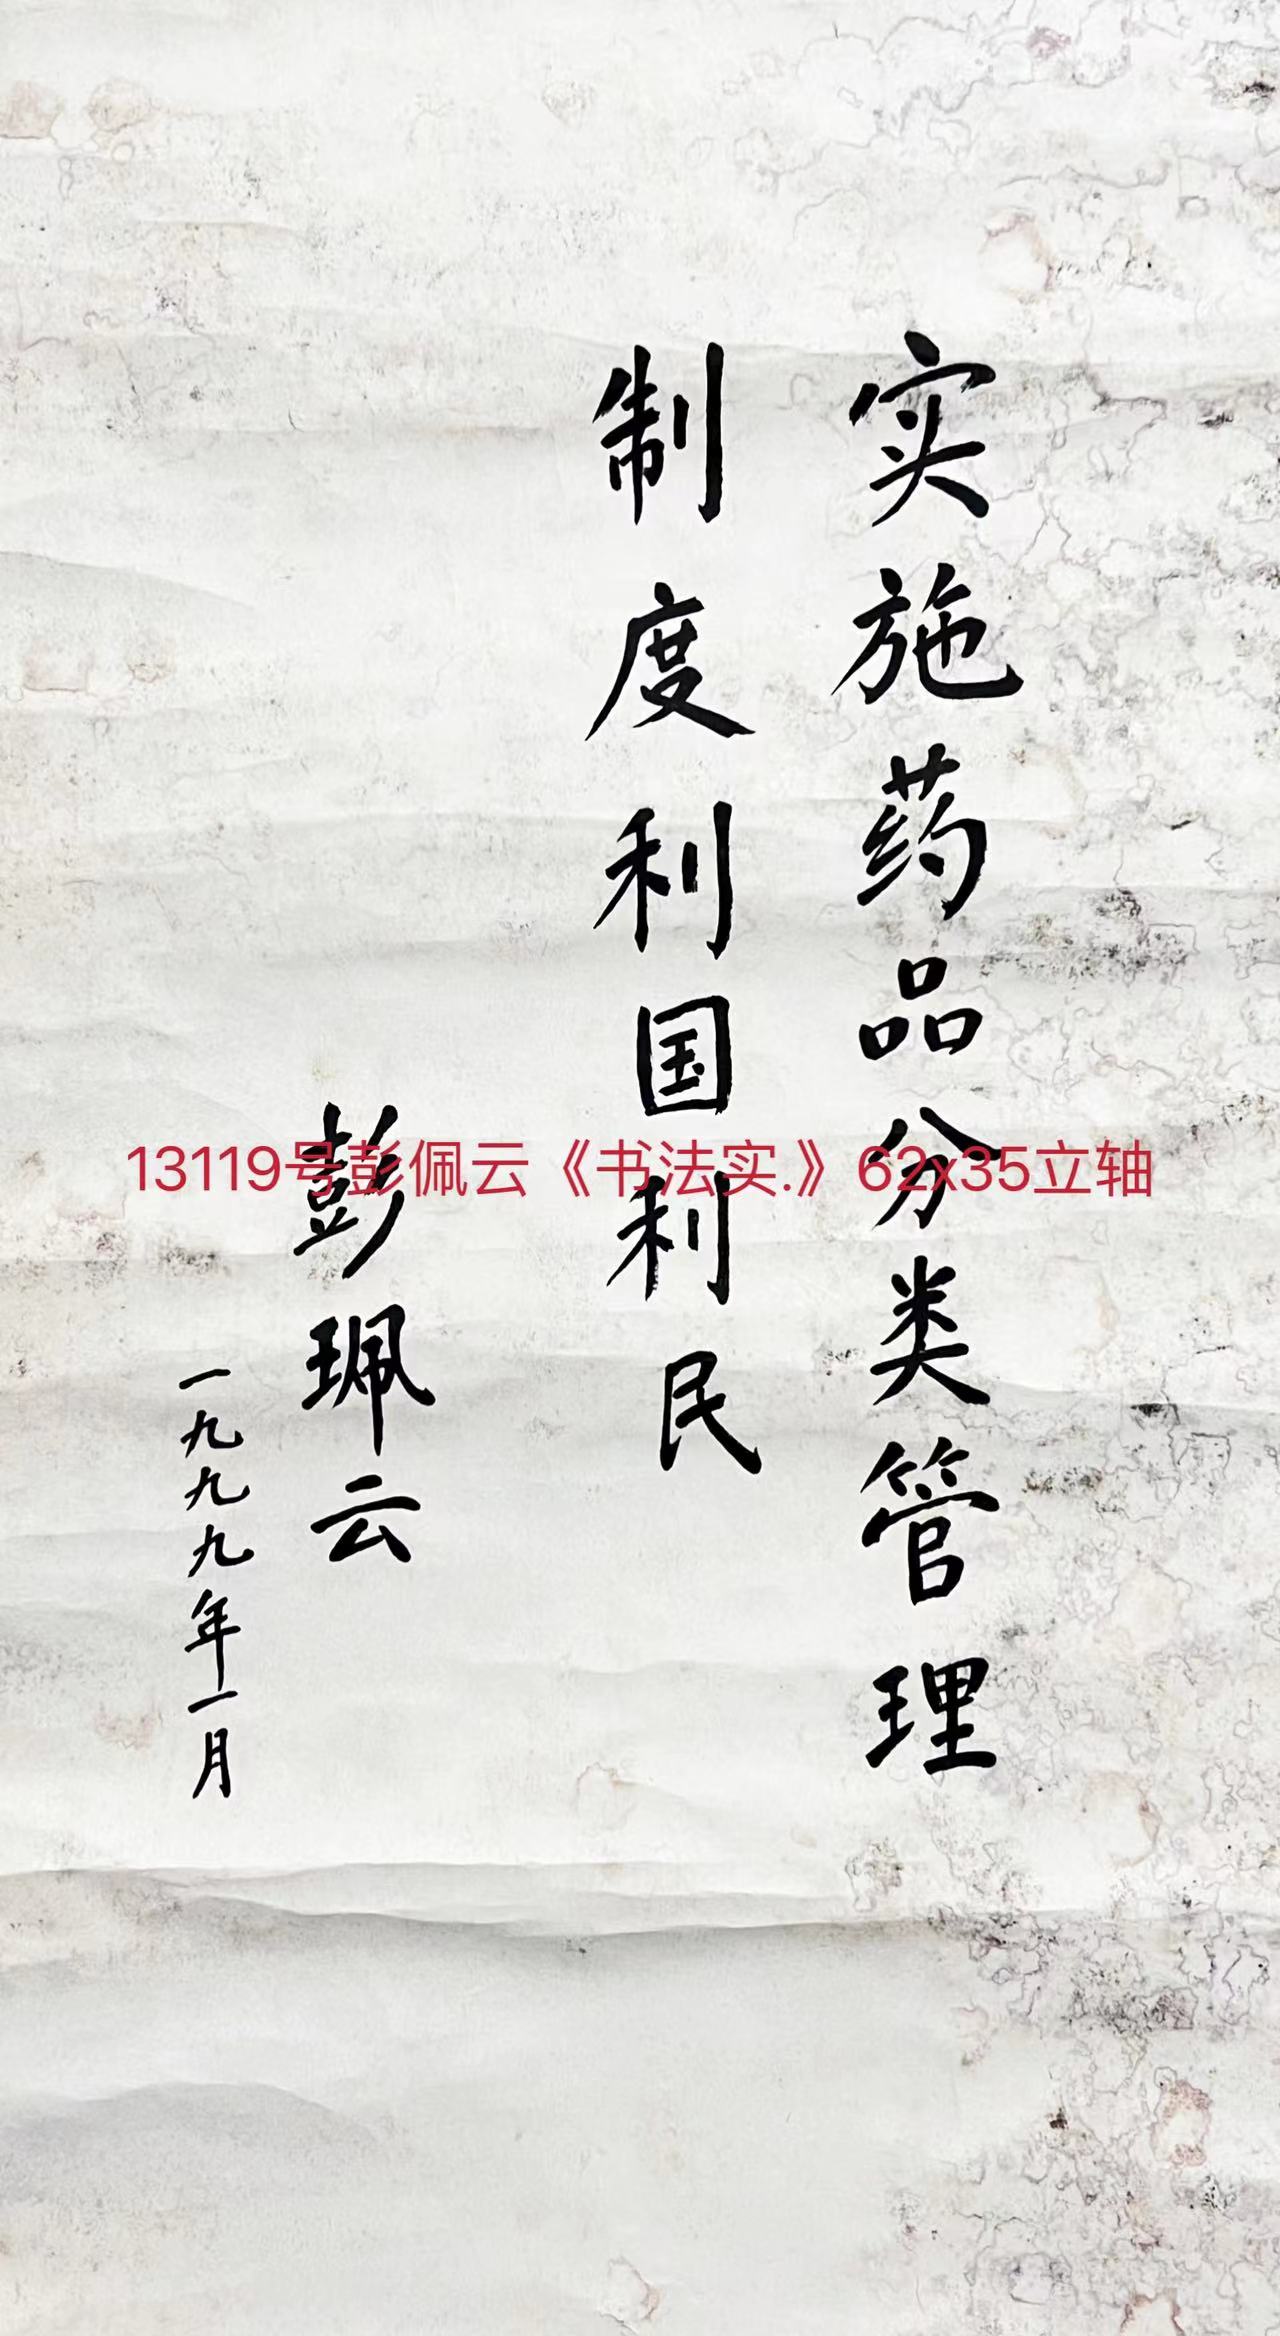 实施药品分类管理
制度利国利民
彭珮云
一九九九年一月
13119号彭佩云《书法实.》62x35立轴